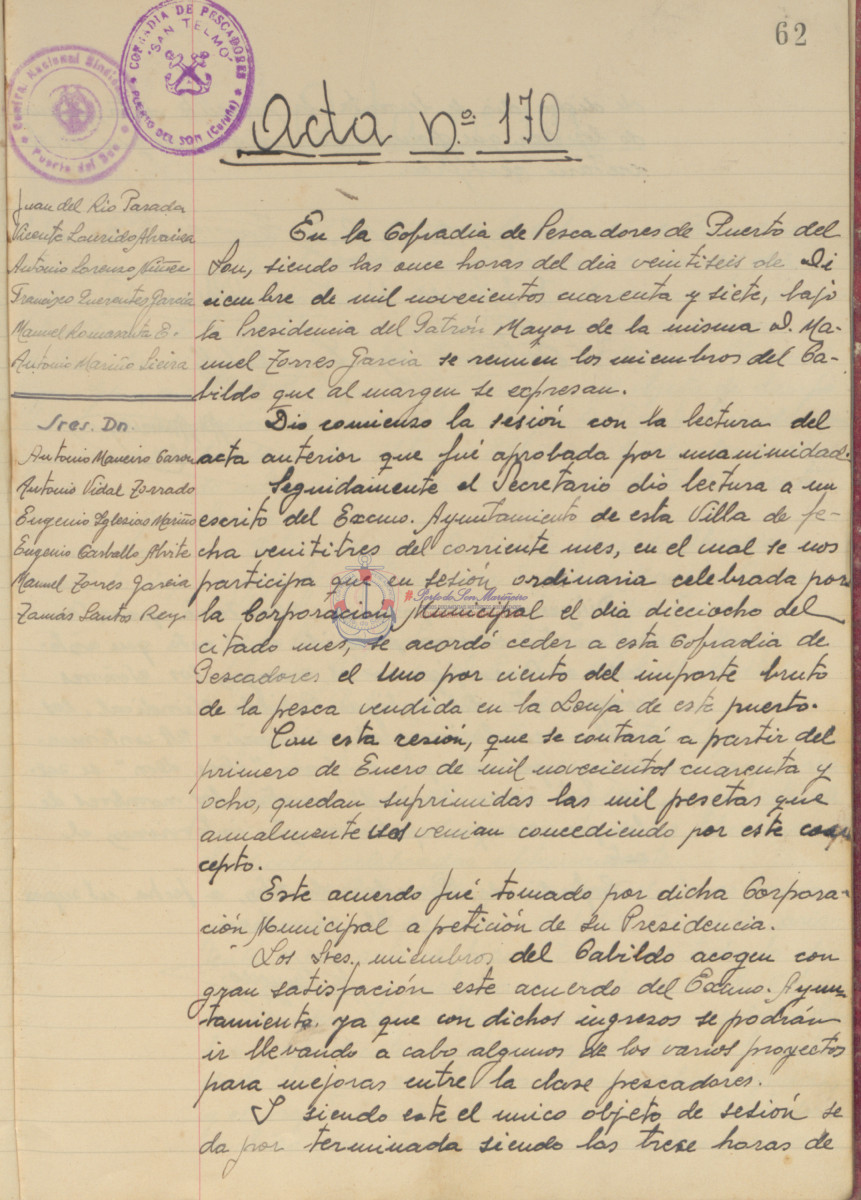 62
COFRADIA DE PESCADORES
"SAN TELMO"
PUERTO DEL SON (Coruña)
Puerto del Son
Acta n.º 170
Juan del Rio Parada
Vicente Lourido
Antonio Lorenzo Núñez
Francisco García
Manuel Romasanta E.
Antonio Mariño Sieira
Sres. Dn.
Antonio Maneiro
Antonio Vidal Torrado
Eugenio Iglesias Mariño
Eugenio Carballo
Manuel Torres Garcia
Tamás Santos Rey
En la Cofradia de Pescadores de Puerto del
Son, siendo las once horas del dia veintiseis de Di
ciembre de mil novecientos cuarenta y siete, bajo
la Presidencia del Patrón Mayor de la misma D. Ma-
nuel Torres Garcia se reunen los miembros del Ca-
bildo que al margen se expresan.
Dio comienzo la sesión con la lectura del
acta anterior que fué aprobada por unanimidad.
Seguidamente el Secretario dio lectura a un
escrito del Excmo. Ayuntamiento de esta Villa de fe-
cha ventitres del corriente mes, en el cual se nos
participa que en sesión ordinaria celebrada por
la Corporación Municipal el dia dieciocho del
Porto do Son Mariñeiro
citado mes, se acordó ceder a esta Cofradia de
Pescadores el Uno por ciento del importe bruto
de la pesca vendida en la Lonja de este puerto.
Con esta cesión, que se contará a partir del
primero de Enero de mil novecientos cuarenta y
ocho, quedan suprimidas las mil pesetas que
anualmente nos venian concediendo por este con-
cepto.
Este acuerdo fué tomado por dicha Corpora-
ción Municipal a petición de su Presidencia.
Los Sres. miembros del Cabildo acogen con
gran satisfación este acuerdo del Excmo. Ayun-
tamiento. ya que con dichos ingresos se podrán
ir llevando a cabo algunos de los varios proyectos
para mejoras entre la clase pescadores.
Y siendo este el unico objeto de sesión se
da por terminada siendo las trese horas de